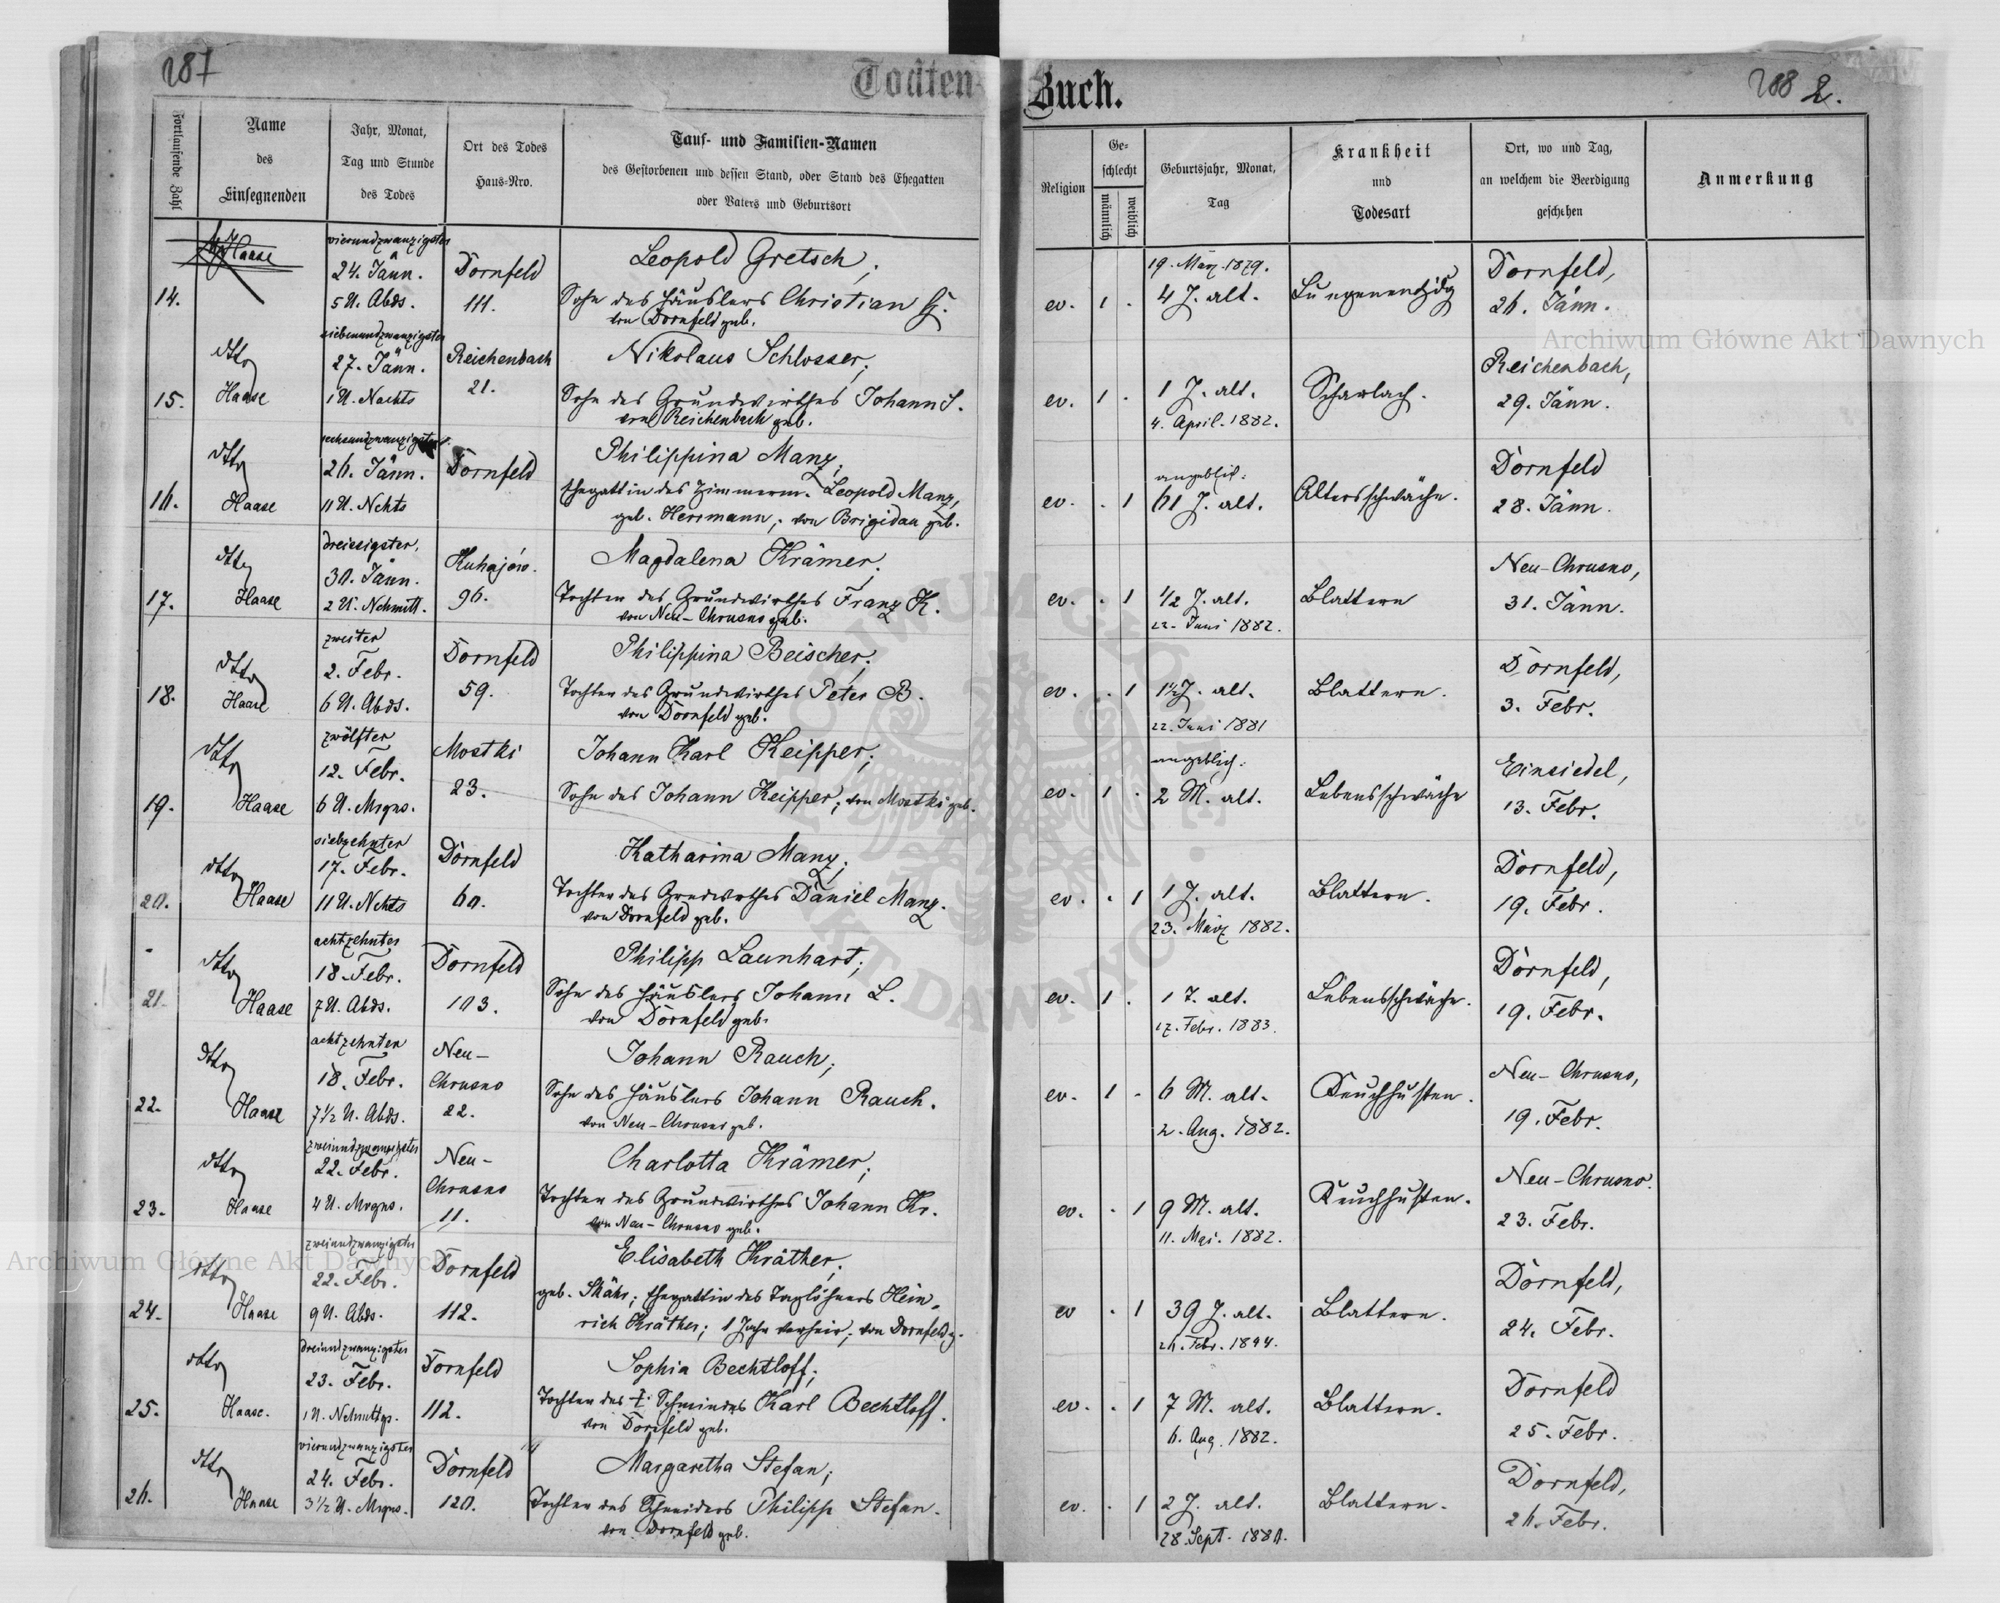 287
Todten-
Buch.
288 2.
Fortlaufende Zahl
Name
des
Einsegnenden
Jahr, Monat,
Tag und Stunde
des Todes
Ort des Todes
Haus-Nro.
Tauf- und Familien-Namen
des Gestorbenen und dessen Stand, oder Stand des Ehegatten
oder Vaters und Geburtsort
Religion
Ge-
schlecht
männlich
weiblich
Geburtsjahr, Monat,
Tag
Krankheit
und
Todesart
Ort, wo und Tag,
an welchem die Beerdigung
geschehen
Anmerkung
14.
Haase
vierundzwanzigster
24. Jänn.
5 U. Abds.
Dornfeld
111.
Leopold Gretsch;
Sohn des Häuslers Christian G.
von Dornfeld geb.
ev. 1 .
19. März. 1879.
4 J. alt.
Lungenentzdg
Dornfeld,
26. Jänn.
15.
dtto
Haase
siebenundzwanzigster
27. Jänn.
1 U. Nachts
Reichenbach
21.
Nikolaus Schlosser;
Sohn des Grundwirthes Johann S.
von Reichenbach geb.
ev. 1 .
1 J. alt.
4. April. 1882.
Scharlach.
Reichenbach,
29. Jänn.
16.
dtto
Haase
sechsundzwanzigster
26. Jänn.
11 U. Nchts
Dornfeld
Philippina Manz;
Ehegattin des Zimmerm. Leopold Manz,
geb. Herrmann; von Brigidau geb.
ev. . 1
angeblich:
61 J. alt.
Altersschwäche.
Dornfeld
28. Jänn.
17.
dtto
Haase
dreissigster.
30. Jänn.
2 U. Nchmitt.
Kuhajów.
96.
Magdalena Krämer;
Tochter des Grundwirthes Franz K.
von Neu-Chrusno geb.
ev. . 1
1/2 J. alt.
22. Juni 1882.
Blattern
Neu-Chrusno,
31. Jänn.
18.
dtto
Haase
zweiter
2. Febr.
6 U. Abds.
Dornfeld
59.
Philippina Beischer;
Tochter des Grundwirthes Peter B.
von Dornfeld geb.
ev. . 1
1½ J. alt.
22. Juni 1881
Blattern.
Dornfeld,
3. Febr.
19.
dtto
Haase
zwölfter
12. Febr.
6 U. Mrgns.
Mostki
23.
Johann Karl Keipper;
Sohn des Johann Keipper; von Mostki geb.
ev. 1 .
angeblich:
2 M. alt.
Lebensschwäche
Einsiedel,
13. Febr.
20.
dtto
Haase
siebzehnter
17. Febr.
11 U. Nchts
Dornfeld
60.
Katharina Manz;
Tochter des Grndwrthes Daniel Manz.
von Dornfeld geb.
ev. . 1
1 J. alt.
23. März 1882.
Blattern.
Dornfeld,
19. Febr.
21.
dtto
Haase
achtzehnter
18. Febr.
7 U. Abds.
Dornfeld
103.
Philipp Launhart;
Sohn des Häuslers Johann L.
von Dornfeld geb.
ev. 1 .
1 T. alt.
17. Febr. 1883.
Lebensschwäche.
Dornfeld,
19. Febr.
22.
dtto
Haase
achtzehnter
18. Febr.
7 1/2 U. Abds.
Neu-
Chrusno
22.
Johann Rauch;
Sohn des Häuslers Johann Rauch.
von Neu-Chrusno geb.
ev. 1 -
6 M. alt.
2. Aug. 1882.
Keuchhusten.
Neu-Chrusno,
19. Febr.
23.
dtto
Haase
zweiundzwanzigster
22. Febr.
4 U. Mrgns.
Neu-
Chrusno
11.
Charlotta Krämer;
Tochter des Grundwirthes Johann Kr.
von Neu-Chrusno geb.
ev. . 1
9 M. alt.
11. Mai. 1882.
Keuchhusten.
Neu-Chrusno.
23. Febr.
24.
dtto
Haase
zweiundzwanzigster
22. Febr.
9 U. Abds.
Dornfeld
112.
Elisabeth Kräther;
geb. Ehegattin des Taglöhners Hein-
rich Kräther; 1 Jahr verheir; von Dornfeld g.
ev . 1
39 J. alt.
26. Febr. 1844.
Blattern.
Dornfeld,
24. Febr.
25.
dtto
Haase.
dreiundzwanzigster
23. Febr.
1 U. Nchmttgs.
Dornfeld
112.
Sophia Bechtloff;
Tochter des Schmiedes Karl Bechtloff.
von Dornfeld geb.
ev. . 1
7 M. alt.
6. Aug. 1882.
Blattern.
Dornfeld
25. Febr.
26.
dtto
Haase
vierundzwanzigster
24. Febr.
3 1/2 U. Mrgns.
Dornfeld
120.
Margaretha Stefan;
Tochter des Schneiders Philipp Stefan.
von Dornfeld geb.
ev. . 1
2 J. alt.
28. Sept. 1880.
Blattern.
Dornfeld,
26. Febr.
Archiwum Główne Akt Dawnych
Archiwum Główne Akt Dawnych
ARCHIWUM GŁÓWNE
AKT DAWNYCH